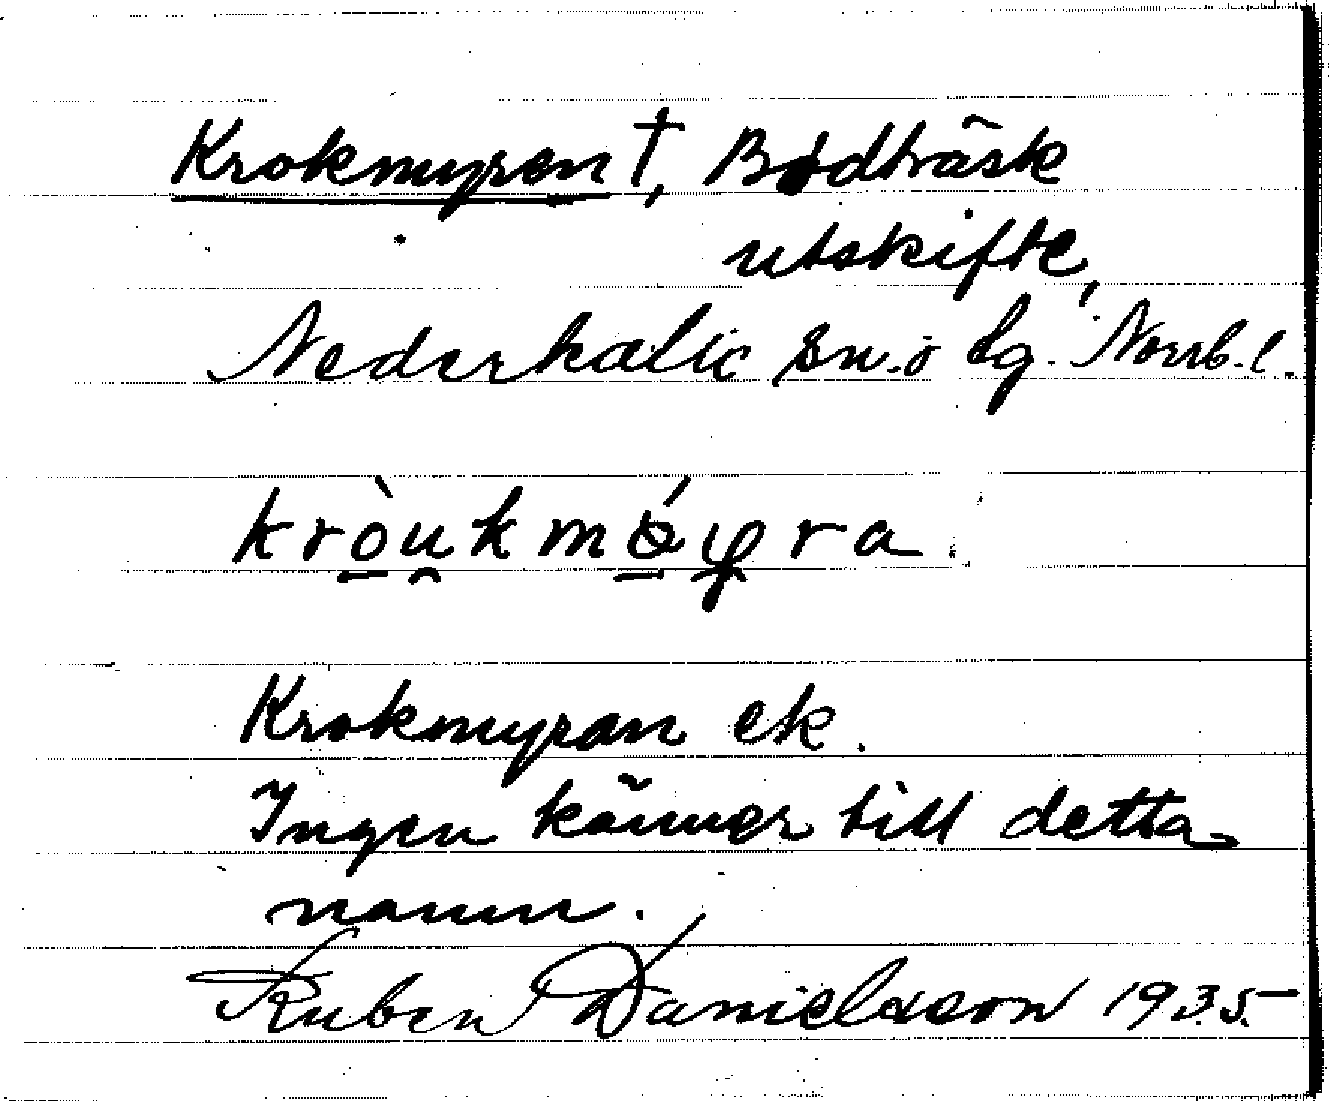 Krokmyren †, Bodträsk
utskifte,
Nederkalix sn. o lg. Norrb. l.
kròu̯kmǿy̯ra
Krokmyran ek.
Ingen känner till detta
namn.
Ruben Danielsson 1935